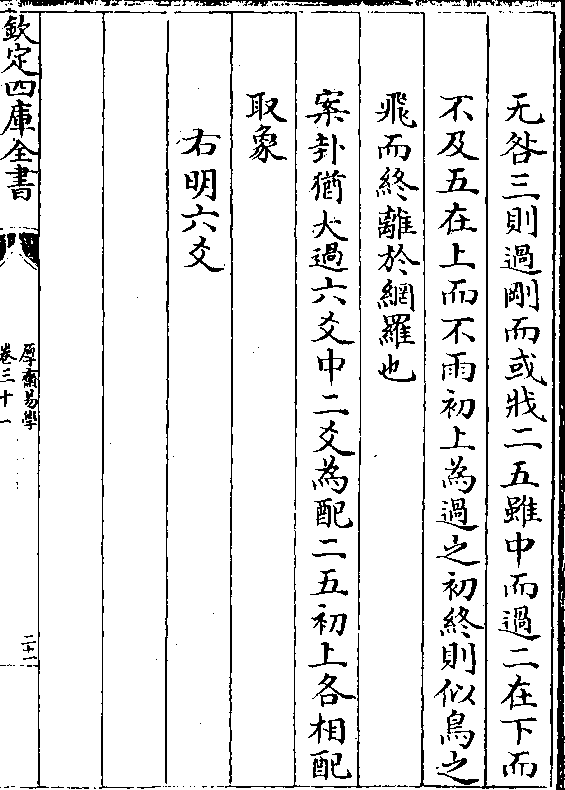 无咎三則過剛而或戕二五雖中而過二在下而
不及五在上而不雨初上為過之初終則似鳥之
飛而終離於網羅也
案卦猶大過六爻中二爻為配二五初上各相配
取象
右明六爻
欽定四庫全書
厚齋易學
卷三十一
二十二